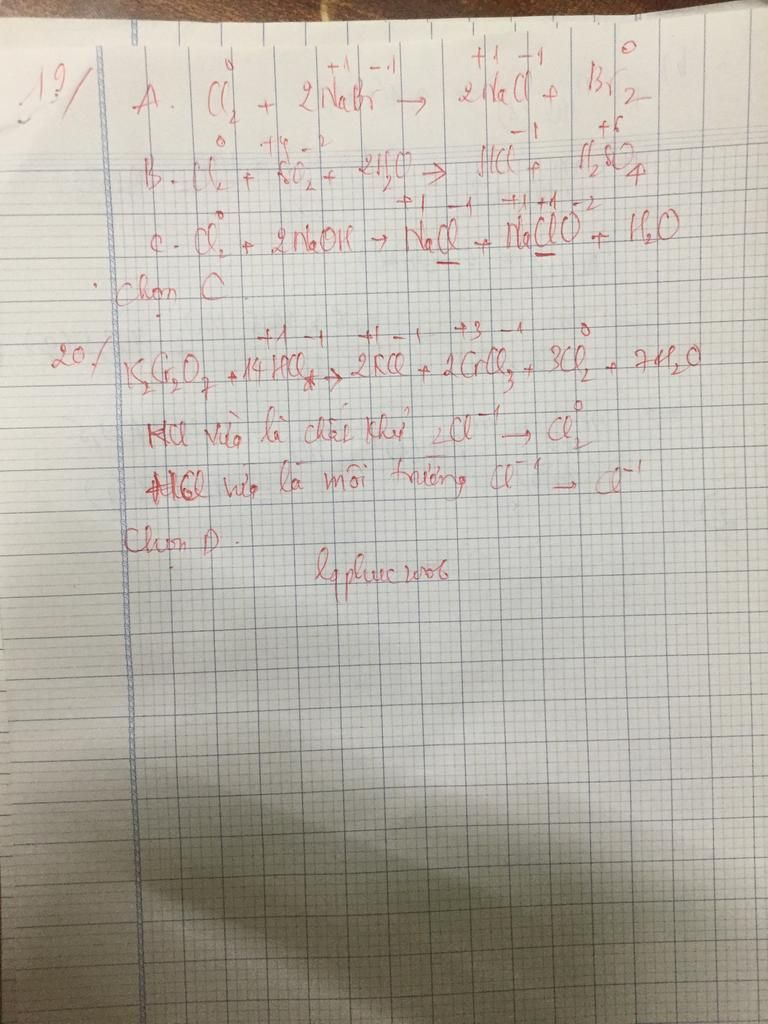 19/ A. Cl₂⁰ + 2Na⁺¹Br⁻¹ → 2Na⁺¹Cl⁻¹ + Br₂⁰
B. Cl₂⁰ + S⁺⁴O₂⁻² + 2H₂O → HCl⁻¹ + H₂S⁺⁶O₄
C. Cl₂⁰ + 2NaOH → Na⁺¹Cl⁻¹ + Na⁺¹Cl⁺¹O⁻² + H₂O
. Chọn C
20/ K₂Cr₂O₇ + 14H⁺¹Cl⁻¹ → 2K⁺¹Cl⁻¹ + 2Cr⁺³Cl₃⁻¹ + 3Cl₂⁰ + 7H₂O
HCl vừa là chất khử 2Cl⁻¹ → Cl₂⁰
HCl vừa là môi trường Cl⁻¹ → Cl⁻¹
Chọn D.
lqphuc2006